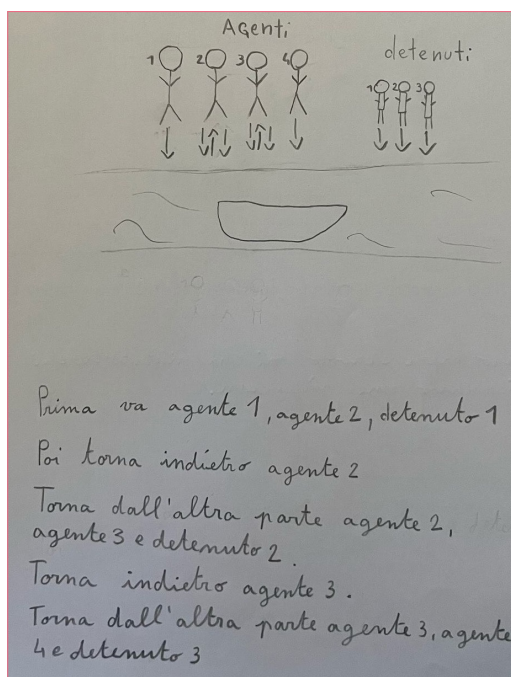 Agenti
detenuti
1 2 3 4
1 2 3
Prima va agente 1, agente 2, detenuto 1
Poi torna indietro agente 2
Torna dall'altra parte agente 2,
agente 3 e detenuto 2.
Torna indietro agente 3.
Torna dall'altra parte agente 3, agente
4 e detenuto 3